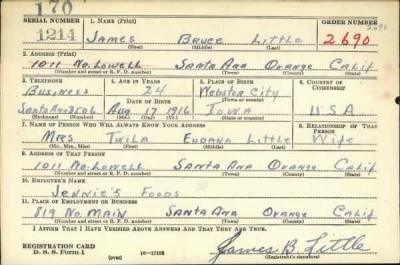 170
SERIAL NUMBER 1. NAME (Print) ORDER NUMBER
1214 James Bruce Little 2690
(First) (Middle) (Last)
2. ADDRESS (Print)
1011 No. Lowell Santa Ana Orange Calif
(Number and street or R. F. D. number) (Town) (County) (State)
3. TELEPHONE 4. AGE IN YEARS 5. PLACE OF BIRTH 6. COUNTRY OF CITIZENSHIP
Business 24 Webster City
DATE OF BIRTH (Town or county)
Santa Ana 3506 Aug 17 1916 Iowa USA
(Exchange) (Number) (Mo.) (Day) (Yr.) (State or country)
7. NAME OF PERSON WHO WILL ALWAYS KNOW YOUR ADDRESS 8. RELATIONSHIP OF THAT PERSON
Mrs Twila Little Wife
(Mr., Mrs., Miss) (First) (Middle) (Last)
9. ADDRESS OF THAT PERSON
1011 No. Lowell Santa Ana Orange Calif
(Number and street or R. F. D. number) (Town) (County) (State)
10. EMPLOYER'S NAME
Jennie's Foods
11. PLACE OF EMPLOYMENT OR BUSINESS
819 No. Main Santa Ana Orange Calif
(Number and street or R. F. D. number) (Town) (County) (State)
I AFFIRM THAT I HAVE VERIFIED ABOVE ANSWERS AND THAT THEY ARE TRUE.
REGISTRATION CARD
D. S. S. Form 1 (over) 16-17105 James B. Little
(Registrant's signature)